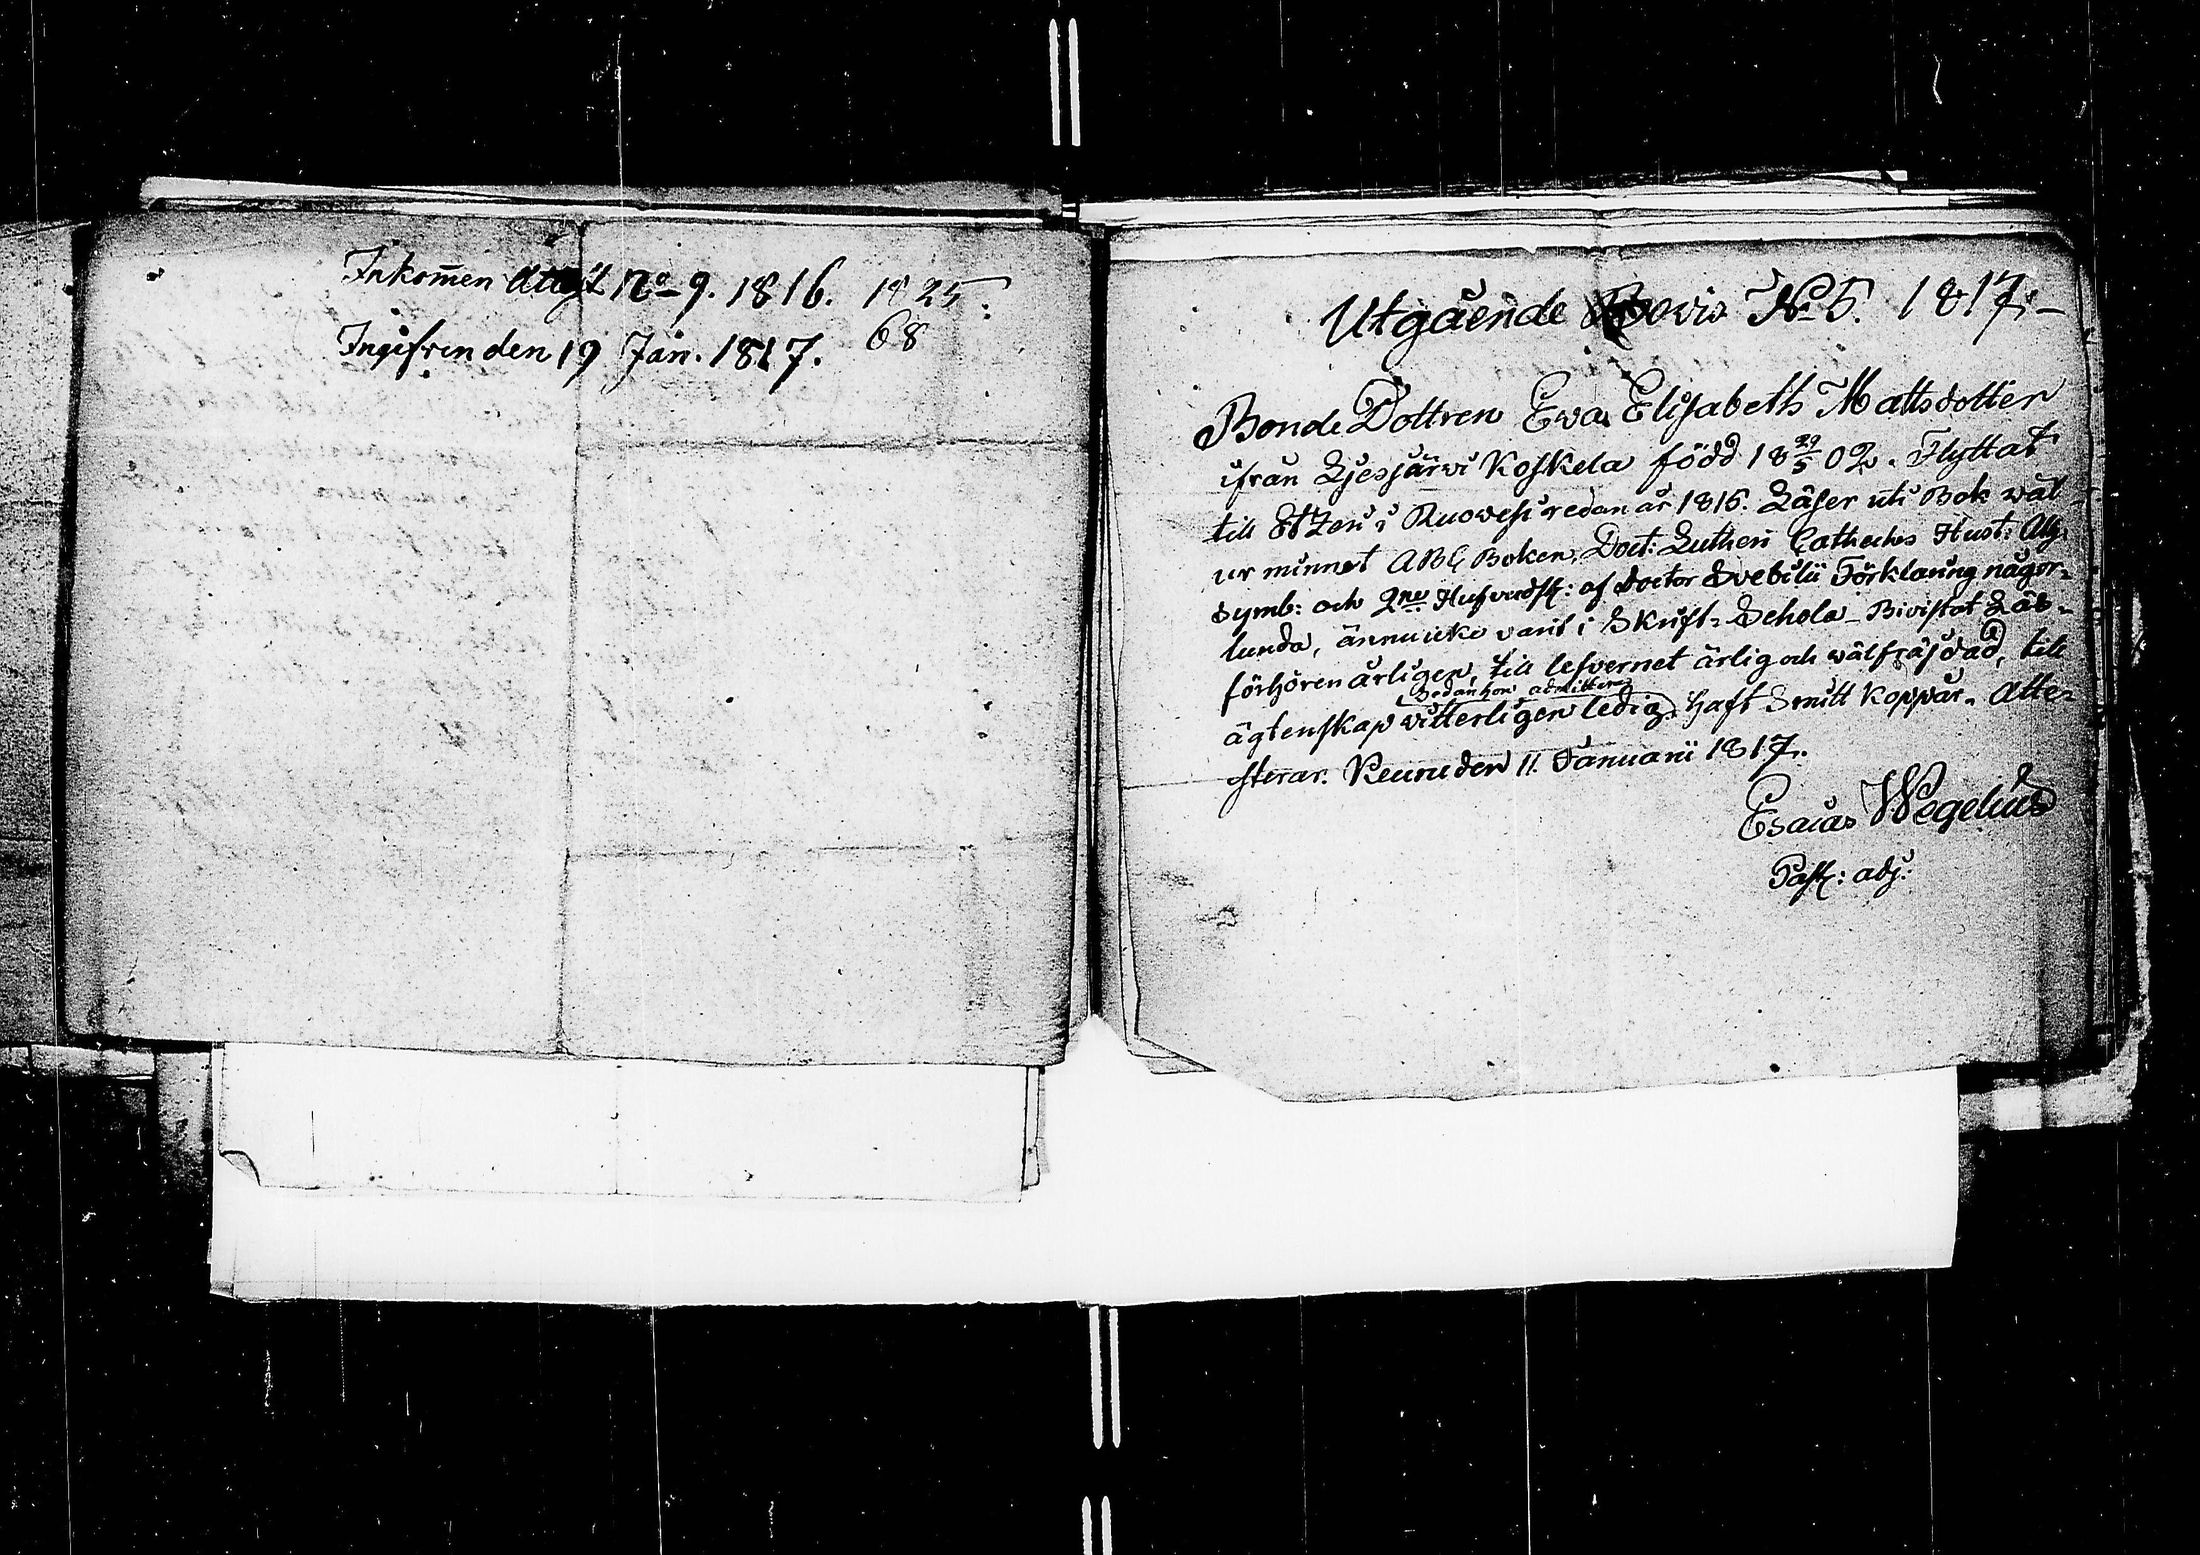 Inkomen attest No 9. 1816. 1825.
Ingifven den 19 Jan. 1817. 68
Utgående Bevis No 5. 1817.-
Bonde Dottren Eva Elisabeth Mattsdotter
ifrån Liesjärvi Koskela född 18 29/5 02. Flyttat
till Etzeri i Ruowesi redan år 1816. Läser uti Bok wäl
ur minnet ABC Boken, Doct: Lutheri Catheches Hust:
Symb: och 2ne Hufvudst: af Doctor Svebilii Förklaring någor-
lunda, ännu icke varit i Skrift-Schola - Bivistat Läs-
förhören årligen, till lefvernet ärlig och wälfräjdad, till
ägtenskap vitterligen ledig. haft Smitt koppår. Atte-
sterar. Keuru den 11. Januarii 1817.
Esaias Wegelius
Past: adj: